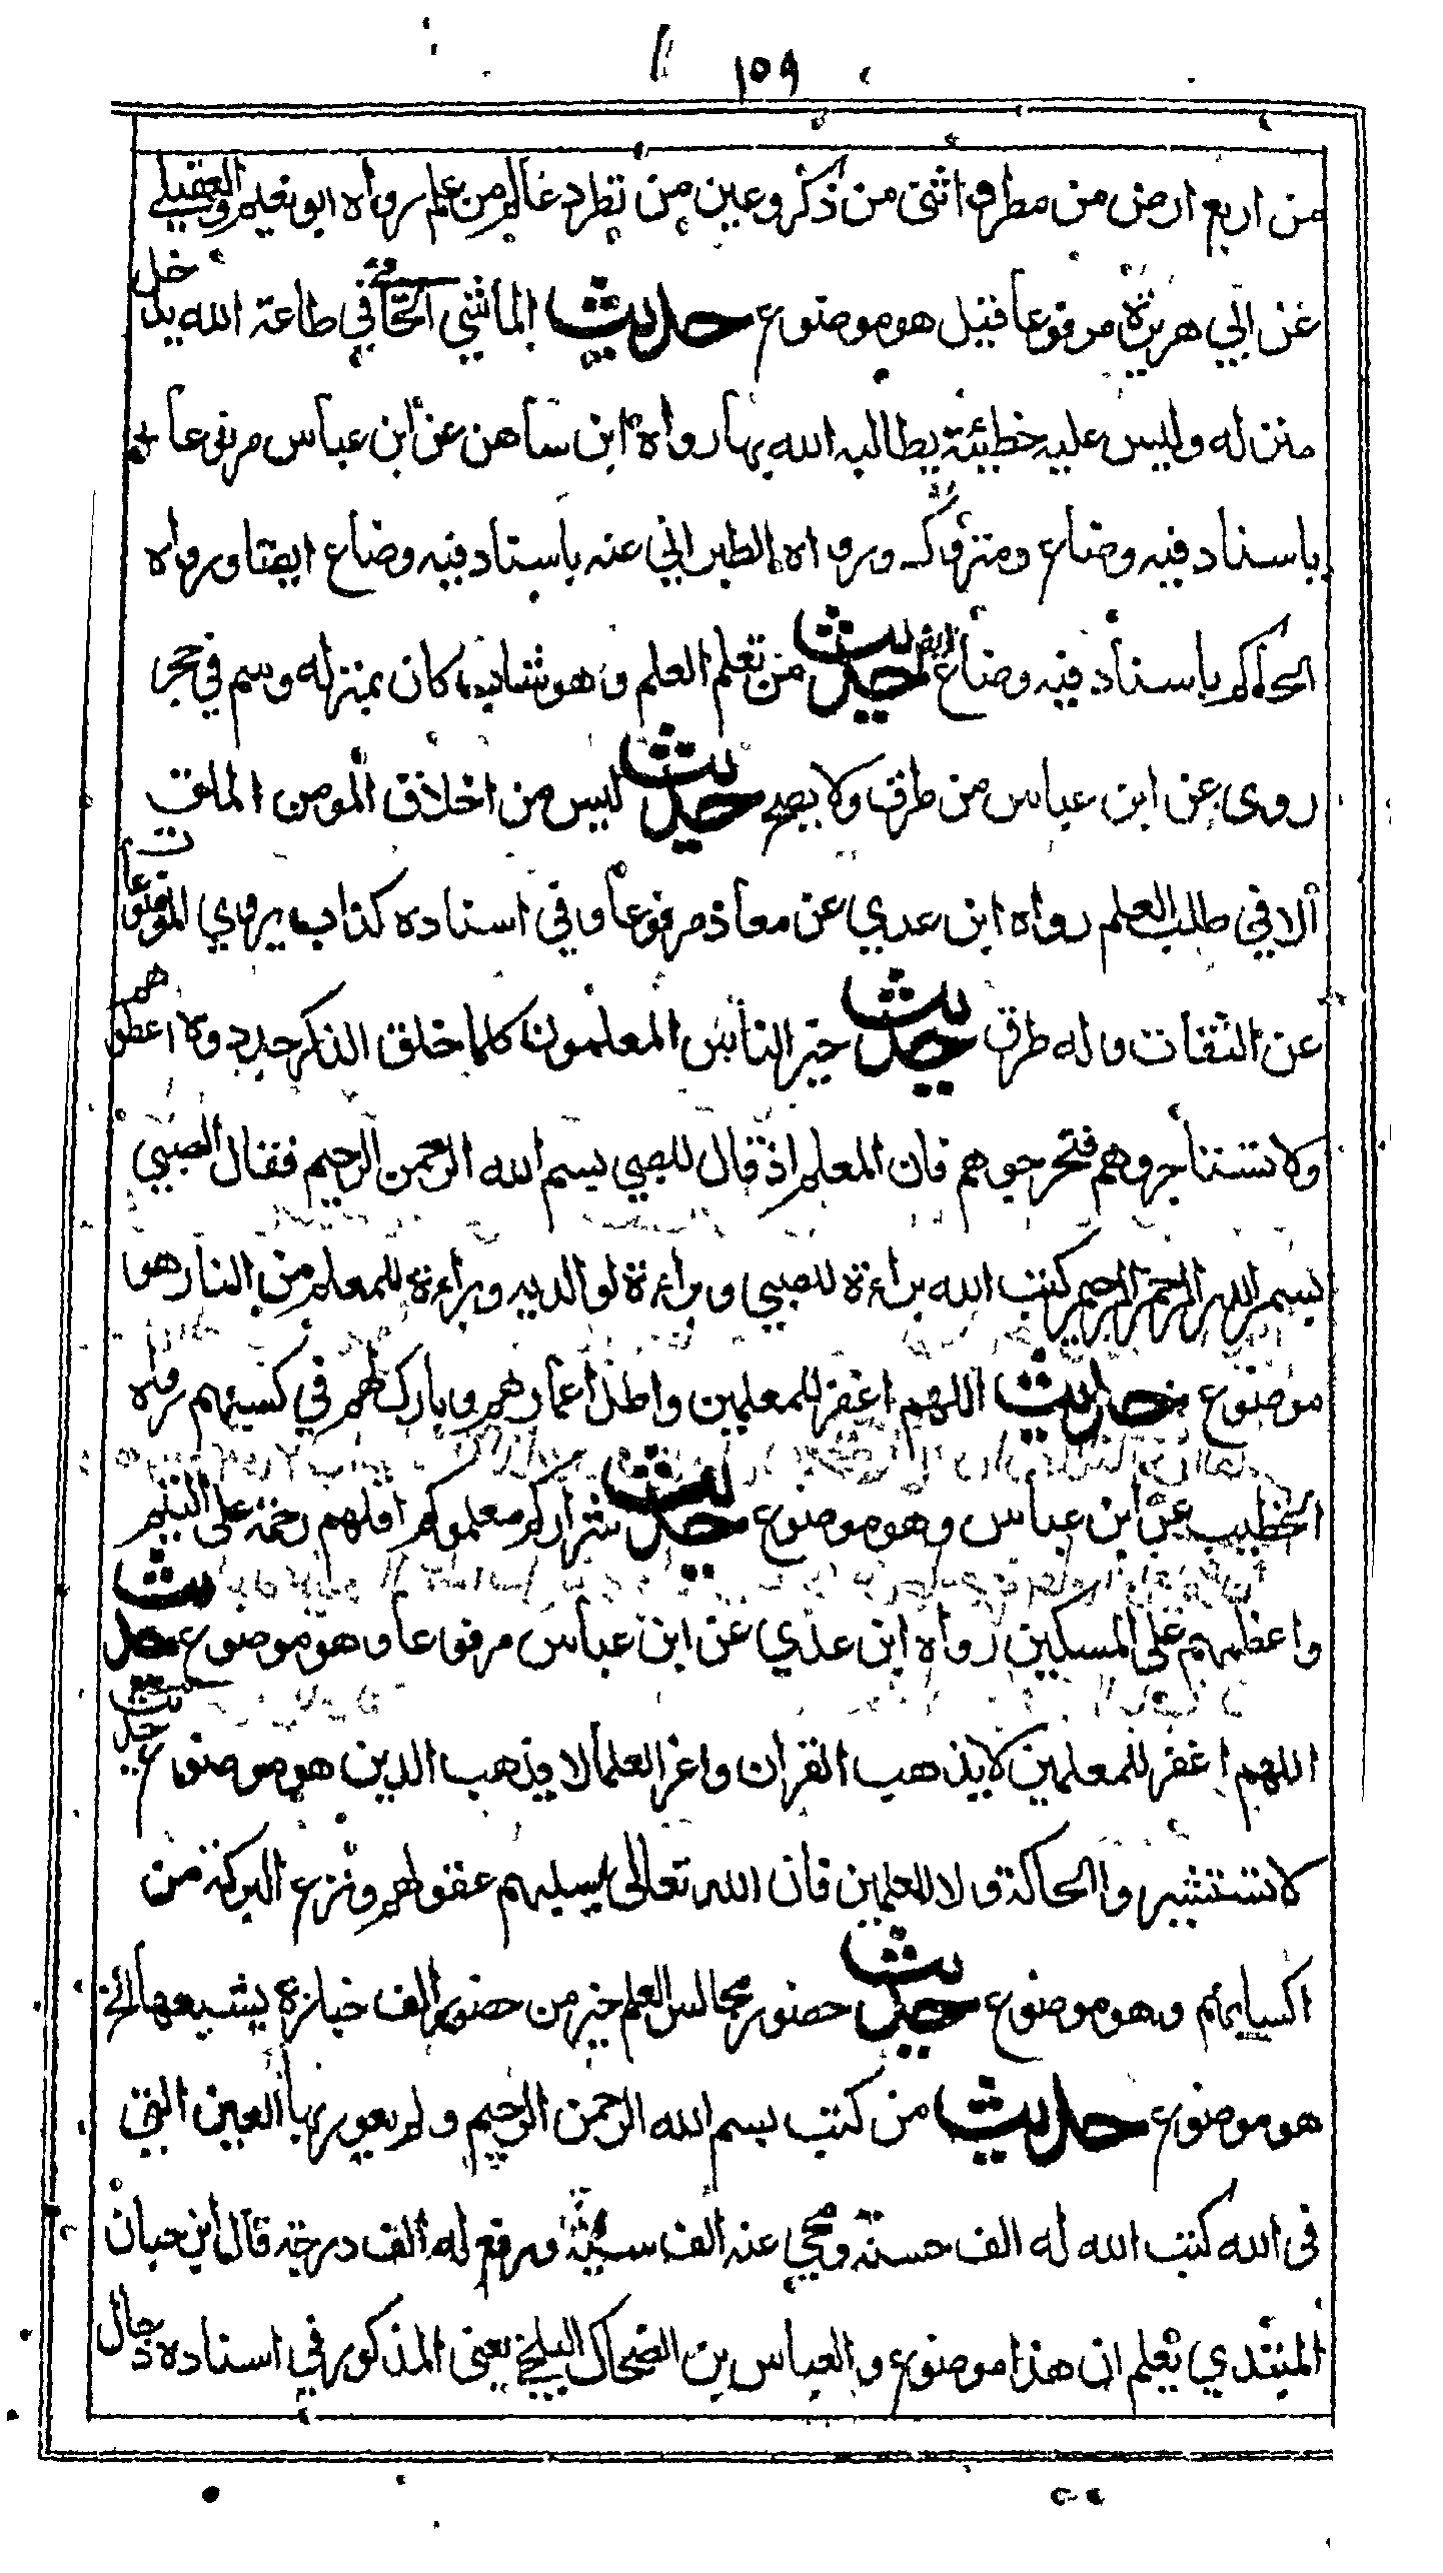 ١٥٩
من اربع ارض من مطر و انثى من ذكر وعين من نظر و عالم من علم رواه ابو نعيم والعقيلي
عن ابي هريرة مرفوعا قيل هو موضوع حديث الماشي الحافي في طاعة الله يدخل
منزله وليس عليه خطيئة يطالبه الله بها رواه ابن شاهن عن ابن عباس مرفوعا
باسناد فيه وضاع ومتروك ورواه الطبراني عنه باسناد فيه وضاع ايضا ورواه
الحاكم باسناد فيه وضاع ايضا حديث من تعلم العلم وهو شاب كان بمنزله وسم في حجر
روى عن ابن عباس من طرق ولا يصح حديث ليس من اخلاق المومن الملق
الا في طلب العلم رواه ابن عدي عن معاذ مرفوعا وفي اسناده كذاب يروي الموضوعات
عن الثقات وله طرق حديث خير الناس المعلمون كلما خلق الذكر جددوه اعطوهم
ولا تستأجروهم فتحرجوهم فان المعلم اذ قال للصبي بسم الله الرحمن الرحيم فقال الصبي
بسم الله الرحمن الرحيم كتب الله براءة للصبي وبراءة لوالديه وبراءة للمعلم من النار هو
موضوع حديث اللهم اغفر للمعلمين واطل اعمارهم وبارك لهم في كسبهم رواه
الخطيب عن ابن عباس وهو موضوع حديث شراركم معلموكم اقلهم رحمة على اليتيم
واغلظهم على المسكين رواه ابن عدي عن ابن عباس مرفوعا وهو موضوع حديث
اللهم اغفر للمعلمين لا يذهب القران واعز العلما لا يذهب الدين هو موضوع حديث
لا تستشيروا الحاكة ولا المعلمين فان الله تعالى يسلبهم عقولهم ونزع البركة من
اكسابهم وهو موضوع حديث حضور مجالس العلم خير من حضور الف جنازة يشيعها الخ
هو موضوع حديث من كتب بسم الله الرحمن الرحيم ولم يعور بها العين التي
في الله كتب الله له الف حسنة ومحي عنه الف سيئة ورفع له الف درجة قال ابن حبان
المبتدي يعلم ان هذا موضوع والعباس بن الضحاك البلخي يعنى المذكور في اسناده دجال